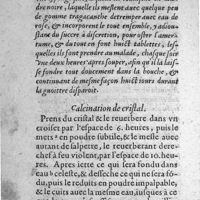 dre noire, laquelle ils meslent auec quelque peu
de gomme tragacanthe detrempee auec eau de
rose, & incorporent le tout ensemble, y adious-
tans du sucre à discretion, pour oster l'amer-
tume, & du tout en font huict tablettes, les-
quelles ils font prendre au malade, chaque soir
vne deux heures apres souper, afin qu'il la lais-
se fondre tout doucement dans la bouche, &
continuent de mesme façon huict iours durant
la gouttre disparoit.
Calcination de cristal.
Prens du cristal & le reuerbere dans vn
croiset par l'espace de 6. heures, puis le
mets en poudre subtile, & le mesle auec
autant de salpetre, le reuerberant dere-
chef à feu violent, par l'espace de 10. heu-
res. Apres iette ce qui sera fondu dans
eau celeste, & desseche ce qui ne sera fon-
du, puis le reduits en poudre impalpable,
& le cuits auec la mesme eau, iusques à ce